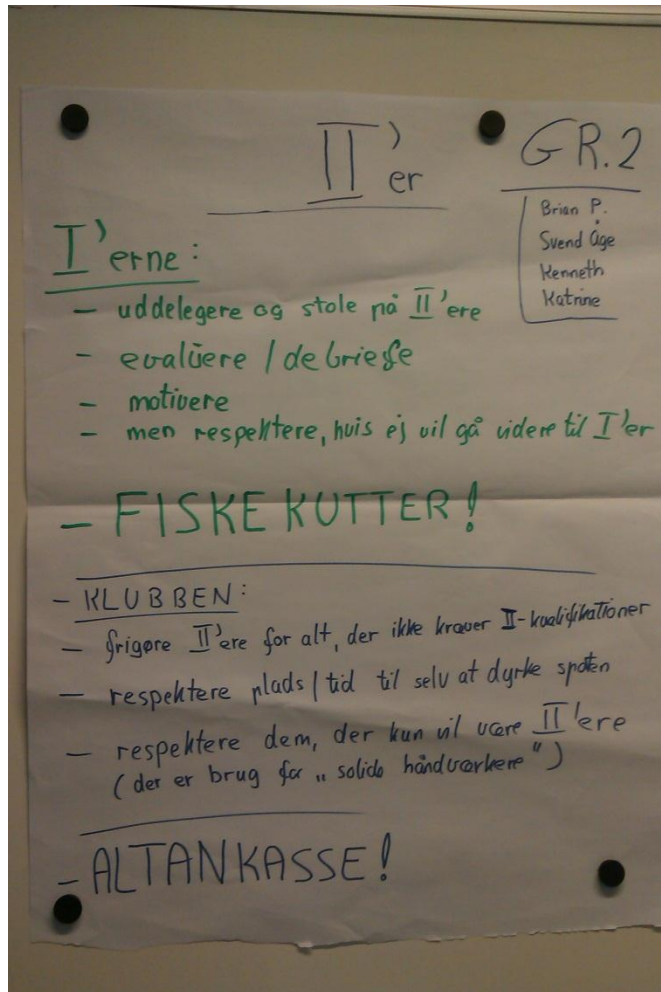 II'er
GR.2
Brian P.
Svend Åge
Kenneth
Katrine
I'erne:
- uddelegere og stole på II'ere
- evalüere / debriefe
- motivere
- men respektere, hvis ej vil gå videre til I'er
- FISKEKUTTER!
- KLUBBEN:
- frigøre II'ere for alt, der ikke kræver II-kvalifikationer
- respektere plads / tid til selv at dyrke sporten
- respektere dem, der kun vil være II'ere
(der er brug for „solide håndværkere")
- ALTANKASSE!